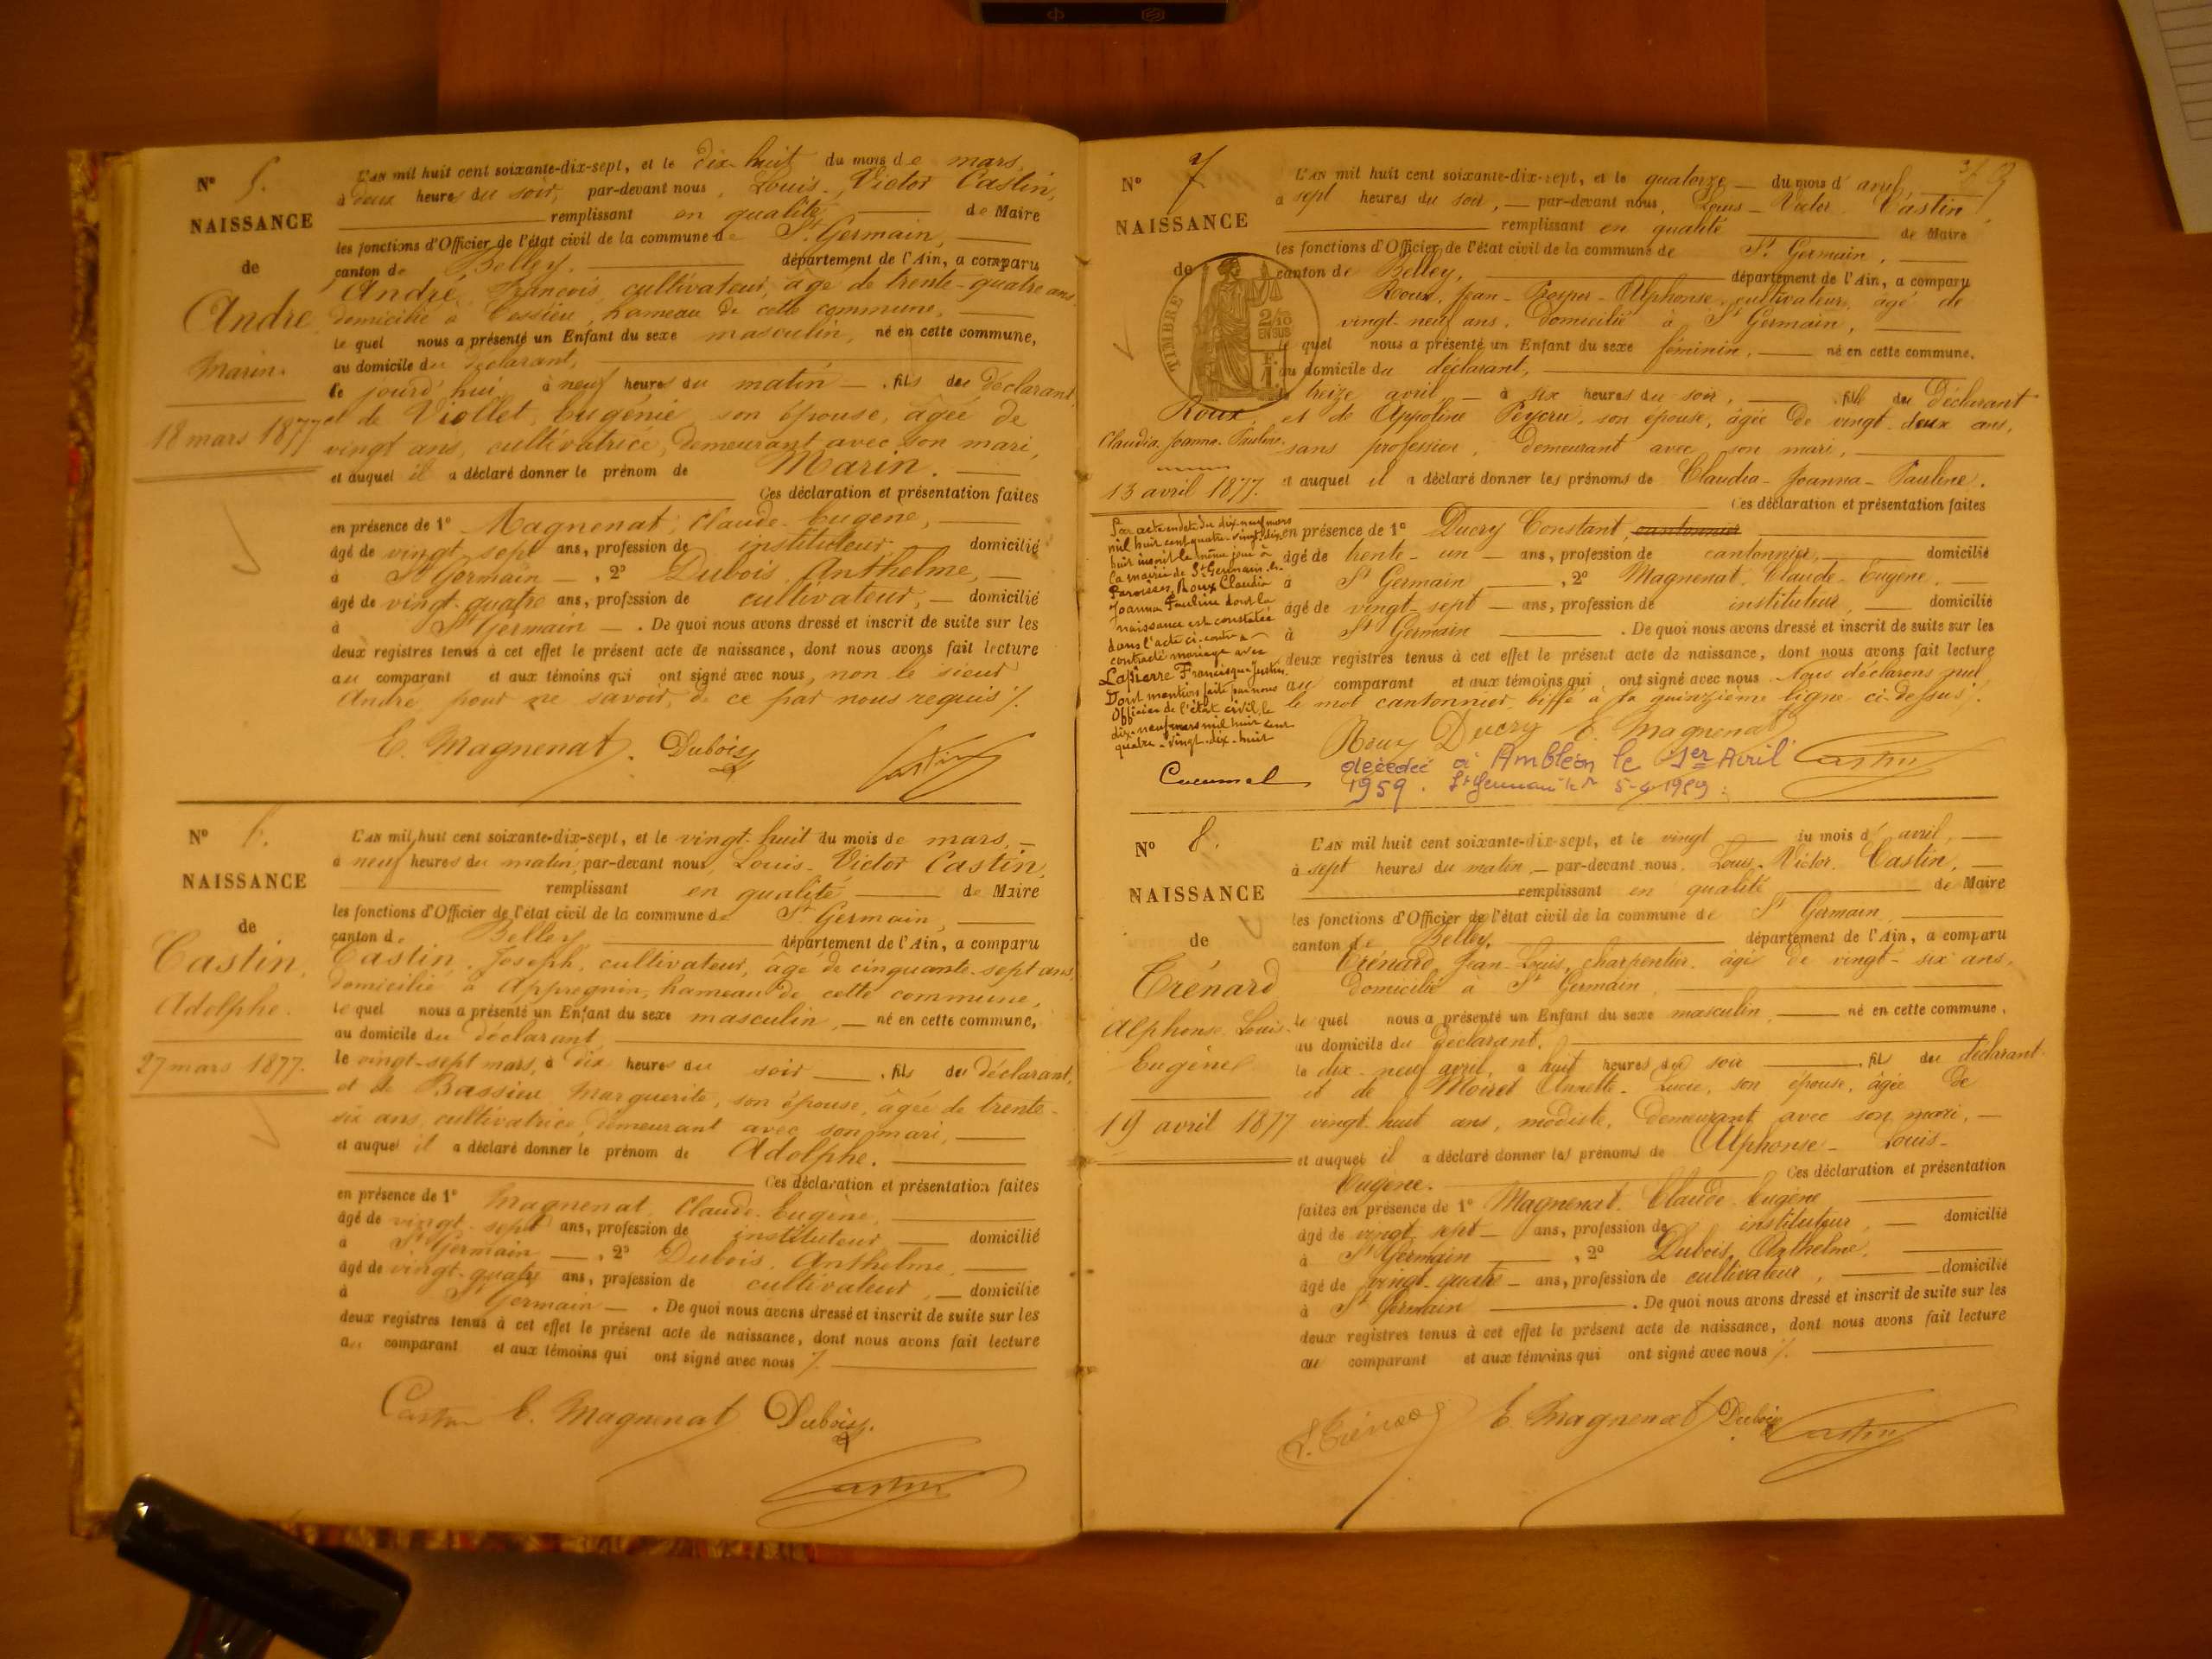 N° 5.
NAISSANCE
de
André
Marin.
18 mars 1877
L'AN mil huit cent soixante-dix-sept, et le dix-huit du mois de mars,
à deux heures du soir, par-devant nous, Louis-Victor Castin,
remplissant en qualité de Maire
les fonctions d'Officier de l'état civil de la commune de St Germain,
canton de Belley, département de l'Ain, a comparu
André, François, cultivateur, âgé de trente-quatre ans,
domicilié à Cessieu, hameau de cette commune,
le quel nous a présenté un Enfant du sexe masculin, né en cette commune,
au domicile du déclarant,
le jourd'hui, à neuf heures du matin, fils du déclarant
et de Viollet, Eugénie, son épouse, âgée de
vingt ans, cultivatrice, demeurant avec son mari,
et auquel il a déclaré donner le prénom de Marin.
Ces déclaration et présentation faites
en présence de 1° Magnenat, Claude-Eugène,
âgé de vingt-sept ans, profession de instituteur, domicilié
à St Germain, 2° Dubois, Anthelme,
âgé de vingt-quatre ans, profession de cultivateur, domicilié
à St Germain. De quoi nous avons dressé et inscrit de suite sur les
deux registres tenus à cet effet le présent acte de naissance, dont nous avons fait lecture
au comparant et aux témoins qui ont signé avec nous, non le sieur
André pour ne savoir, de ce par nous requis /.
E. Magnenat. Dubois Castin
N° 6.
NAISSANCE
de
Castin,
Adolphe.
27 mars 1877.
L'AN mil huit cent soixante-dix-sept, et le vingt-huit du mois de mars,
à neuf heures du matin, par-devant nous, Louis-Victor Castin,
remplissant en qualité de Maire
les fonctions d'Officier de l'état civil de la commune de St Germain,
canton de Belley, département de l'Ain, a comparu
Castin, Joseph, cultivateur, âgé de cinquante-sept ans,
domicilié à Appregnin, hameau de cette commune,
le quel nous a présenté un Enfant du sexe masculin, né en cette commune,
au domicile du déclarant
le vingt-sept mars, à dix heures du soir, fils du déclarant,
et de Bassieu Marguerite, son épouse, âgée de trente-
six ans, cultivatrice, demeurant avec son mari,
et auquel il a déclaré donner le prénom de Adolphe.
Ces déclaration et présentation faites
en présence de 1° Magnenat, Claude-Eugène,
âgé de vingt-sept ans, profession de instituteur domicilié
à St Germain, 2° Dubois, Anthelme,
âgé de vingt-quatre ans, profession de cultivateur, domicilié
à St Germain. De quoi nous avons dressé et inscrit de suite sur les
deux registres tenus à cet effet le présent acte de naissance, dont nous avons fait lecture
au comparant et aux témoins qui ont signé avec nous /.
Castin E. Magnenat Dubois
Castin
7
N° 7
NAISSANCE
de
TIMBRE
2/10
EN SUS
Roux,
Claudia, Joanna-Pauline.
13 avril 1877.
Par acte en date du dix-neuf mars
mil huit cent quatre-vingt-dix-
huit inscrit le même jour à
la mairie de St Germain-les-
Paroisses, Roux Claudia
Joanna Pauline dont la
naissance est constatée
dans l'acte ci-contre a
contracté mariage avec
Lapierre Francisque Justin.
Dont mention faite par nous
Officier de l'état civil, le
dix-neuf mars mil huit cent
quatre-vingt-dix-huit
L'AN mil huit cent soixante-dix-sept, et le quatorze du mois d'avril,
à sept heures du soir, par-devant nous, Louis-Victor Castin
remplissant en qualité de Maire
les fonctions d'Officier de l'état civil de la commune de St Germain,
canton de Belley, département de l'Ain, a comparu
Roux, Jean-Prosper-Alphonse, cultivateur, âgé de
vingt-neuf ans, domicilié à St Germain,
le quel nous a présenté un Enfant du sexe féminin, né en cette commune,
au domicile du déclarant,
le treize avril à six heures du soir, fille du déclarant
et de Appoline Peycru, son épouse, âgée de vingt-deux ans,
sans profession, demeurant avec son mari,
et auquel il a déclaré donner les prénoms de Claudia-Joanna-Pauline.
Ces déclaration et présentation faites
en présence de 1° Ducry Constant, cantonnier
âgé de trente-un ans, profession de cantonnier, domicilié
à St Germain, 2° Magnenat, Claude-Eugène,
âgé de vingt-sept ans, profession de instituteur, domicilié
à St Germain. De quoi nous avons dressé et inscrit de suite sur les
deux registres tenus à cet effet le présent acte de naissance, dont nous avons fait lecture
au comparant et aux témoins qui ont signé avec nous. Nous déclarons nul
le mot cantonnier, biffé à la quinzième ligne ci-dessus.
Roux Ducry E. Magnenat
décédée à Ambléon le 1er Avril Castin
1959. St Germain 5-4-1959.
N° 8.
NAISSANCE
de
Trénard
Alphonse-Louis-
Eugène
19 avril 1877
L'AN mil huit cent soixante-dix-sept, et le vingt du mois d'avril,
à sept heures du matin, par-devant nous, Louis-Victor Castin,
remplissant en qualité de Maire
les fonctions d'Officier de l'état civil de la commune de St Germain
canton de Belley, département de l'Ain, a comparu
Trénard Jean-Louis, charpentier, âgé de vingt-six ans,
domicilié à St Germain,
le quel nous a présenté un Enfant du sexe masculin, né en cette commune,
au domicile du déclarant,
le dix-neuf avril, à huit heures du soir, fils du déclarant
et de Moiret Annette-Lucie, son épouse, âgée de
vingt-huit ans, modiste, demeurant avec son mari,
et auquel il a déclaré donner les prénoms de Alphonse-Louis-
Eugène. Ces déclaration et présentation
faites en présence de 1° Magnenat, Claude-Eugène
âgé de vingt-sept ans, profession de instituteur, domicilié
à St Germain, 2° Dubois, Anthelme,
âgé de vingt-quatre ans, profession de cultivateur, domicilié
à St Germain. De quoi nous avons dressé et inscrit de suite sur les
deux registres tenus à cet effet le présent acte de naissance, dont nous avons fait lecture
au comparant et aux témoins qui ont signé avec nous /.
L. Trénard E. Magnenat Dubois Castin